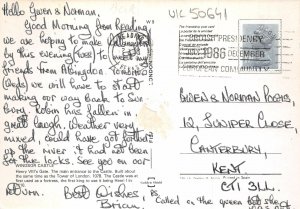 UK 50641
Hello Gwen & Norman,
W 8
Good Morning from Reading
we are hoping to make
by this evening (Tues) to meet my
friends from Abingdon. Tomorrow
(Weds) we will have to start
making our way back to Sun
bury. Robin has fallen in,
quel laugh, Weather very
mixed, Could have got further
up the river if it had not been
for the locks. See you on our
return. Best Wishes
Brian.
WINDSOR CASTLE
Henry VIII's Gate. The main entrance to the Castle. Built about
the same time as the Tower of London, 1078. The Castle was at
first used as a fortress, the first king to use it being Henry I
PRESIDENCY
JULY 1986 DECEMBER
EUROPEAN COMMUNITY
GWEN & NORMAN
12, JUNIPER CLOSE,
CANTERBURY,
KENT
CT1 3LL.
Called on the green